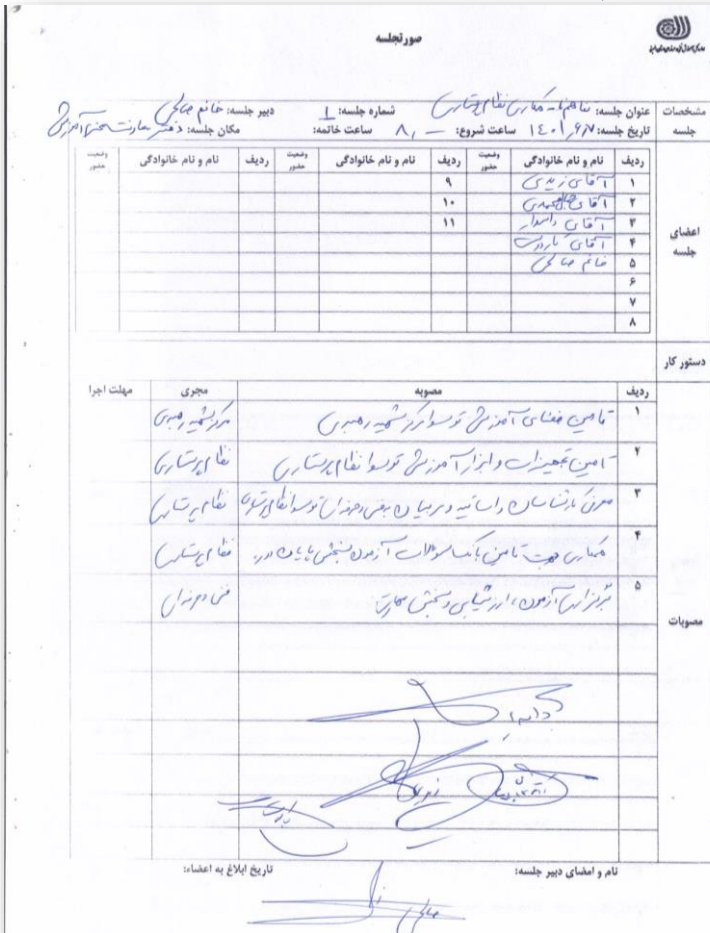 صورتجلسه
مشخصات جلسه
عنوان جلسه: تفاهم نامه همکاری نظام پرستاری شماره جلسه: ۱ دبیر جلسه: خانم صالحی
تاریخ جلسه: ۱۴۰۱/۶/۷ ساعت شروع: ۸ ساعت خاتمه: مکان جلسه: دفتر معاونت آموزش
اعضای جلسه
ردیف نام و نام خانوادگی وضعیت حضور ردیف نام و نام خانوادگی وضعیت حضور ردیف نام و نام خانوادگی وضعیت حضور
۱ آقای زیدی ۹
۲ آقای ۱۰
۳ آقای ۱۱
۴ آقای
۵ خانم صالحی
۶
۷
۸
دستور کار
ردیف مصوبه مجری مهلت اجرا
۱ تامین فضای آموزش توسط مرکز شهید رهبری مرکز شهید رهبری
۲ تامین تجهیزات و ابزار آموزش توسط نظام پرستاری نظام پرستاری
۳ معرفی کارشناسان و اساتید و مربیان به فنی و حرفه ای توسط نظام پرستاری نظام پرستاری
۴ همکاری جهت تامین بانک سوالات آزمون سنجش پایان دوره نظام پرستاری
۵ برگزاری آزمون، ارزشیابی و سنجش مهارت فنی و حرفه ای
مصوبات
نام و امضای دبیر جلسه: تاریخ ابلاغ به اعضاء:
صالحی